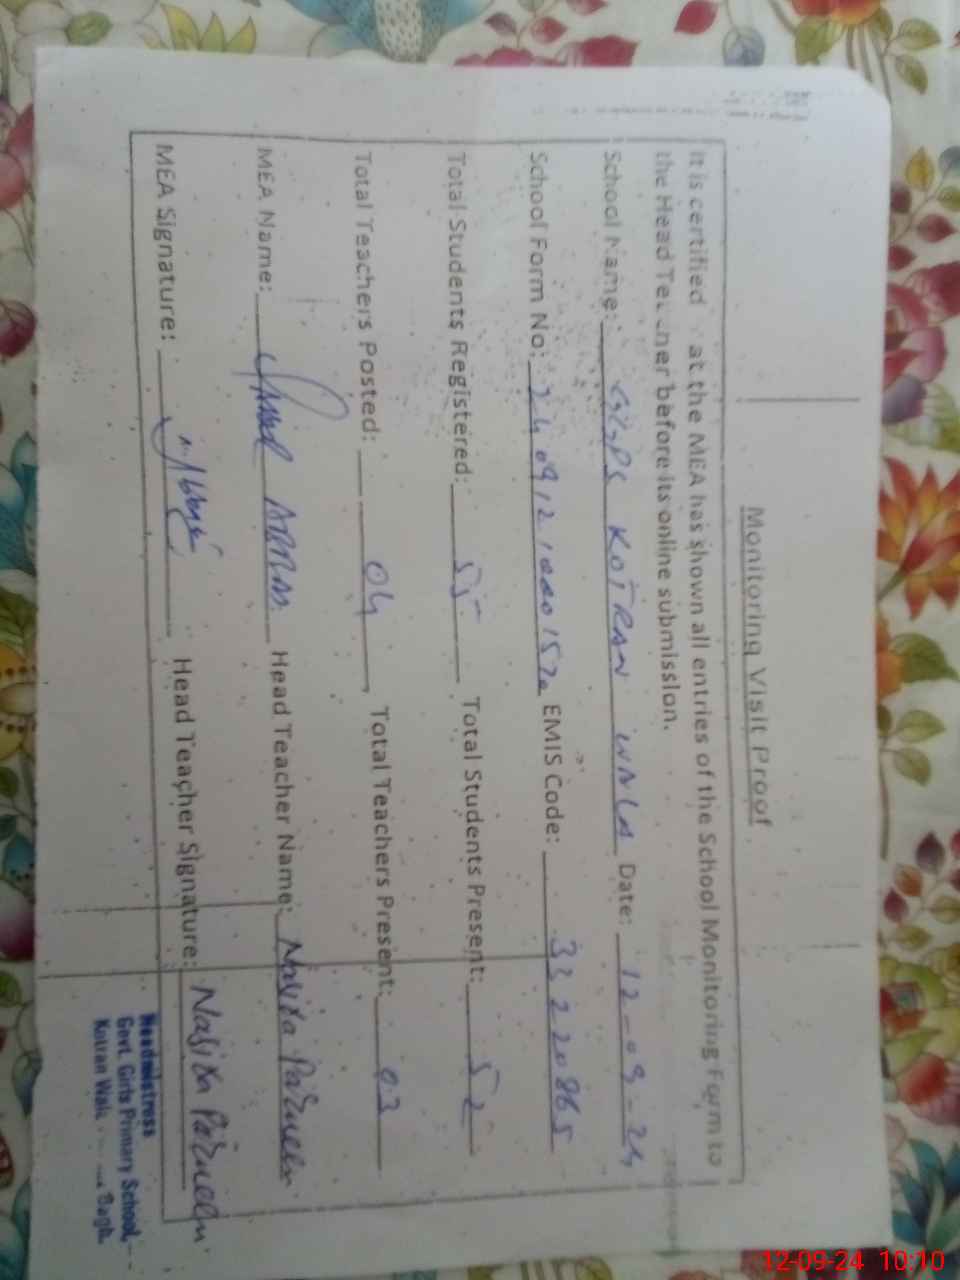 Monitoring Visit Proof
It is certified at the MEA has shown all entries of the School Monitoring Form to
the Head Teacher before its online submission.
School Name: GGPS KOTRAN WALA Date: 12-09-24
School Form No: EMIS Code: 33220865
Total Students Registered: 55 Total Students Present: 52
Total Teachers Posted: 04, Total Teachers Present: 03
MEA Name: Head Teacher Name: Nasira Parveen
MEA Signature: Head Teacher Signature: Nasira Parveen
Headmistress
Govt. Girls Primary School
Kotran Wala Bagh
12-09-24 10:10